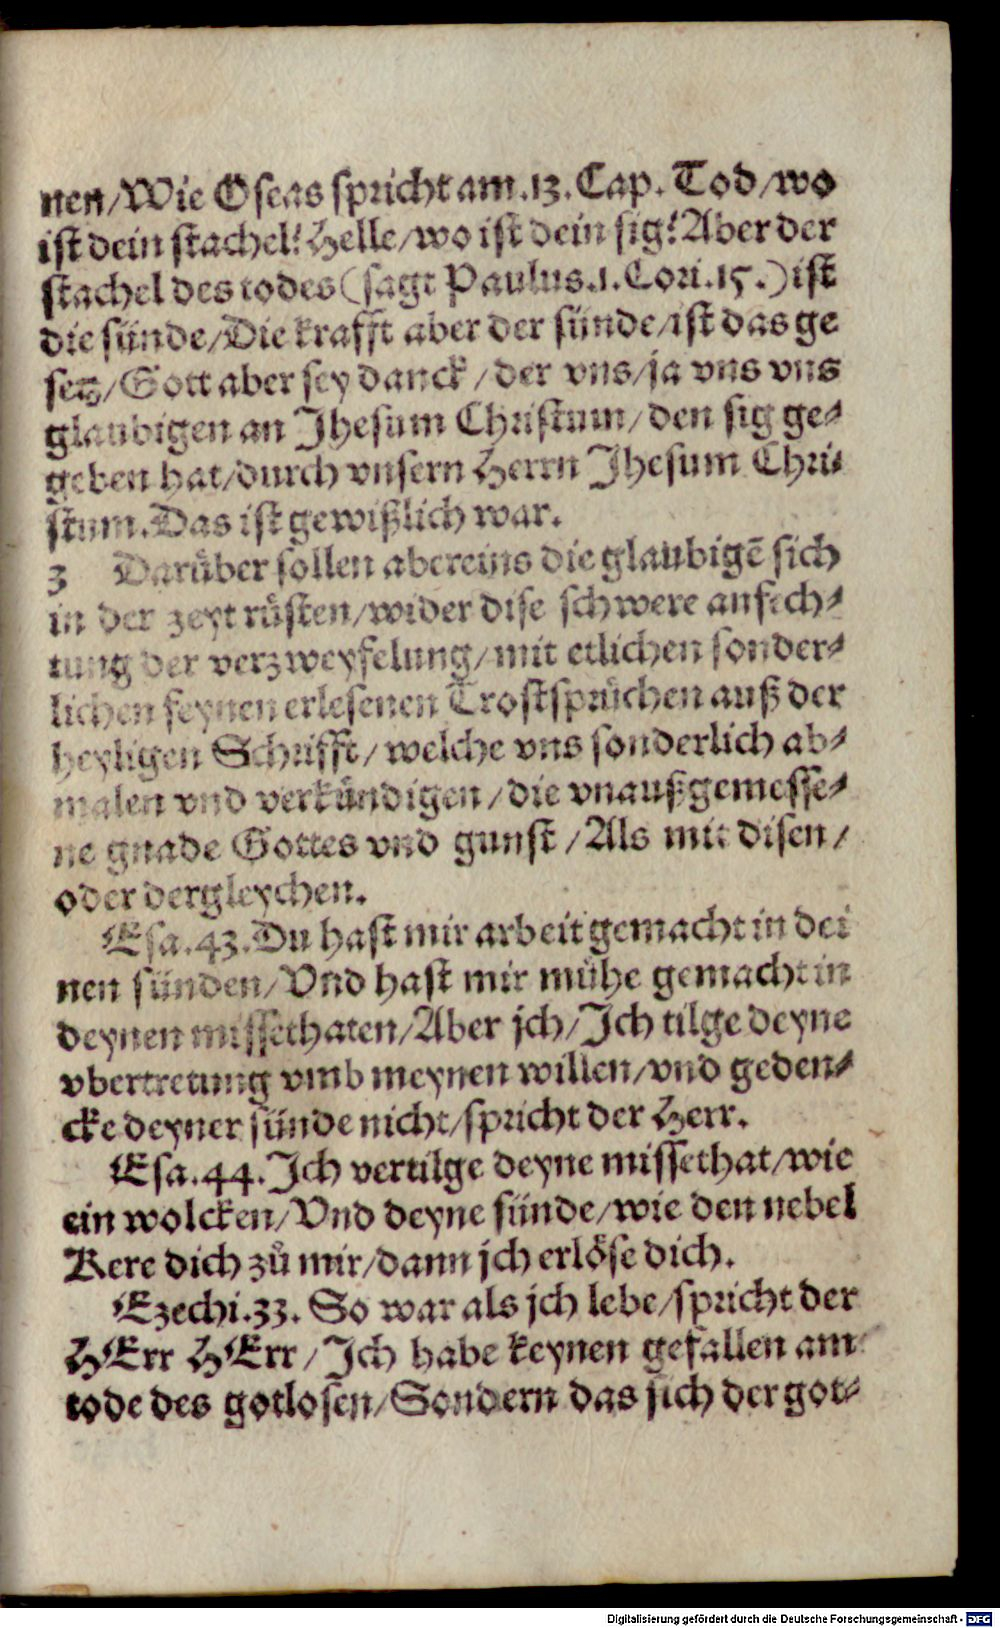 nen/Wie Oseas spricht am.13.Cap. Tod/wo
ist dein stachel? Helle/wo ist dein sig? Aber der
stachel des todes (sagt Paulus.1.Cori.15.) ist
die sünde/Die krafft aber der sünde/ist das ge
setz/Gott aber sey danck/der vns/ja vns vns
glaubigen an Jhesum Christum/den sig ge-
geben hat/durch vnsern Herrn Jhesum Chri-
stum. Das ist gewißlich war.
3 Darüber sollen abereins die glaubigē sich
in der zeyt rüsten/wider dise schwere anfech-
tung der verzweyfelung/mit etlichen sonder-
lichen feynen erlesenen Trostsprüchen auß der
heyligen Schrifft/welche vns sonderlich ab-
malen vnd verkündigen/die vnaußgemesse-
ne gnade Gottes vnd gunst/Als mit disen/
oder dergleychen.
Esa.43. Du hast mir arbeit gemacht in dei
nen sünden/Vnd hast mir mühe gemacht in
deynen missethaten/Aber jch/Jch tilge deyne
vbertretung vmb meynen willen/vnd geden-
cke deyner sünde nicht/spricht der Herr.
Esa.44. Jch vertilge deyne missethat/wie
ein wolcken/Vnd deyne sünde/wie den nebel
Kere dich zů mir/dann jch erlöse dich.
Ezechi.33. So war als jch lebe/spricht der
HErr HErr/Jch habe keynen gefallen am
tode des gotlosen/Sondern das sich der got-
Digitalisierung gefördert durch die Deutsche Forschungsgemeinschaft - DFG